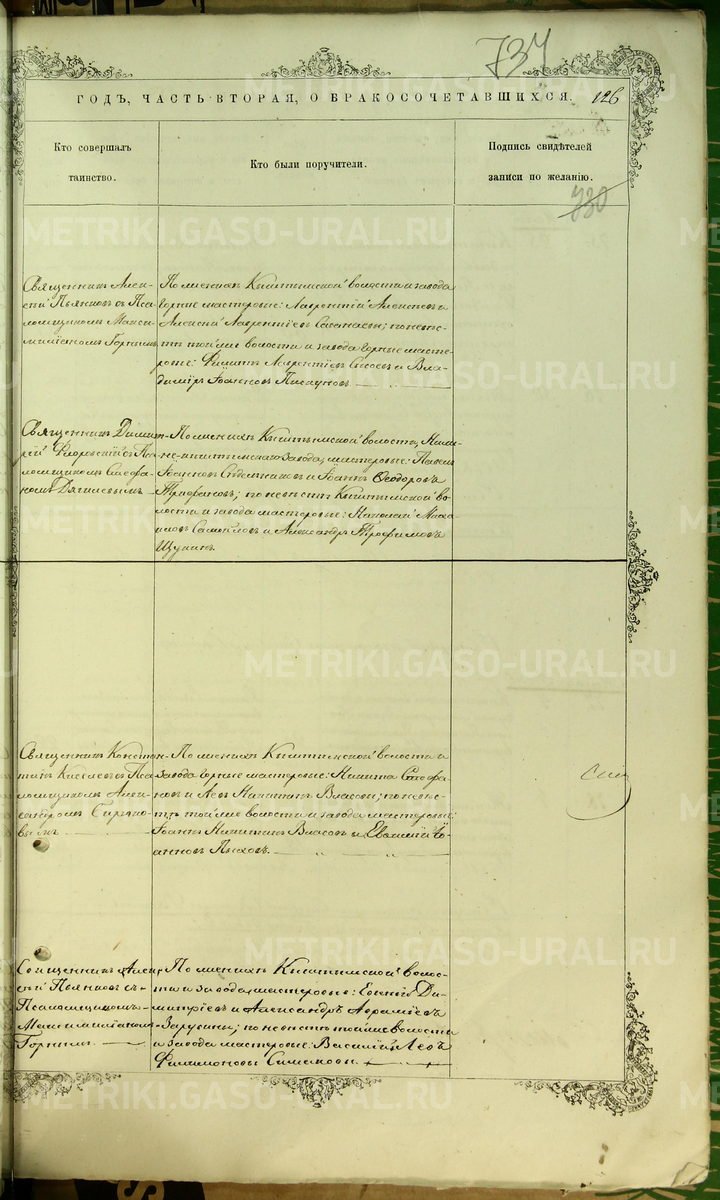 737
ГОДЪ, ЧАСТЬ ВТОРАЯ, О БРАКОСОЧЕТАВШИХСЯ. 126
Кто совершалъ
таинство.
Кто были поручители.
Подпись свидѣтелей
записи по желанію.
730
METRIKI.GASO-URAL.RU
Священникъ Алек-
сѣй Пьянковъ съ Пса-
ломщикомъ Макси-
миліаномъ Горнымъ
По женихѣ Кыштымской волости и завода
горные мастеровые: Лаврентій Алексѣевъ и
Алексѣй Лаврентіевъ; по невѣс-
тѣ той же волости и завода горные масте-
ровые: Филиппъ Лаврентіевъ Сысоевъ и Вла-
диміръ Іоанновъ Пискуновъ
Священникъ Димит-
рій Флоровскій съ Пса-
ломщикомъ Стефа-
номъ Дягилевымъ
По женихѣ Кыштымской волости, Ниж-
не-кыштымскаго завода, мастеровые: Павелъ
Іоанновъ и Іоаннъ Ѳеодоровъ
Трифановъ; по невѣстѣ Кыштымской во-
лости и завода мастеровые: Николай Миха-
иловъ Самойловъ и Александръ Трофимовъ
Щукинъ.
Священникъ Констан-
тинъ Киселевъ съ Пса-
ломщикомъ Алек-
сандромъ
По женихѣ Кыштымской волости и
завода горные мастеровые: Никита Стефа-
новъ и Левъ Никитинъ Власовы; по невѣс-
тѣ той же волости и завода мастеровые:
Іоаннъ Никитинъ Власовъ и Евѳимій Іо-
анновъ Пыховъ.
Священникъ Алек-
сѣй Пьянковъ съ
Псаломщикомъ
Максимиліаномъ
Горнымъ.
По женихѣ Кыштымской волос-
ти и завода, мастеровые: Евгеній Ди-
митріевъ и Александръ Аврамiевъ
Зарубины; по невѣстѣ той же волости
и завода мастеровые: Василій и Левъ
Филимоновы Симаковы.